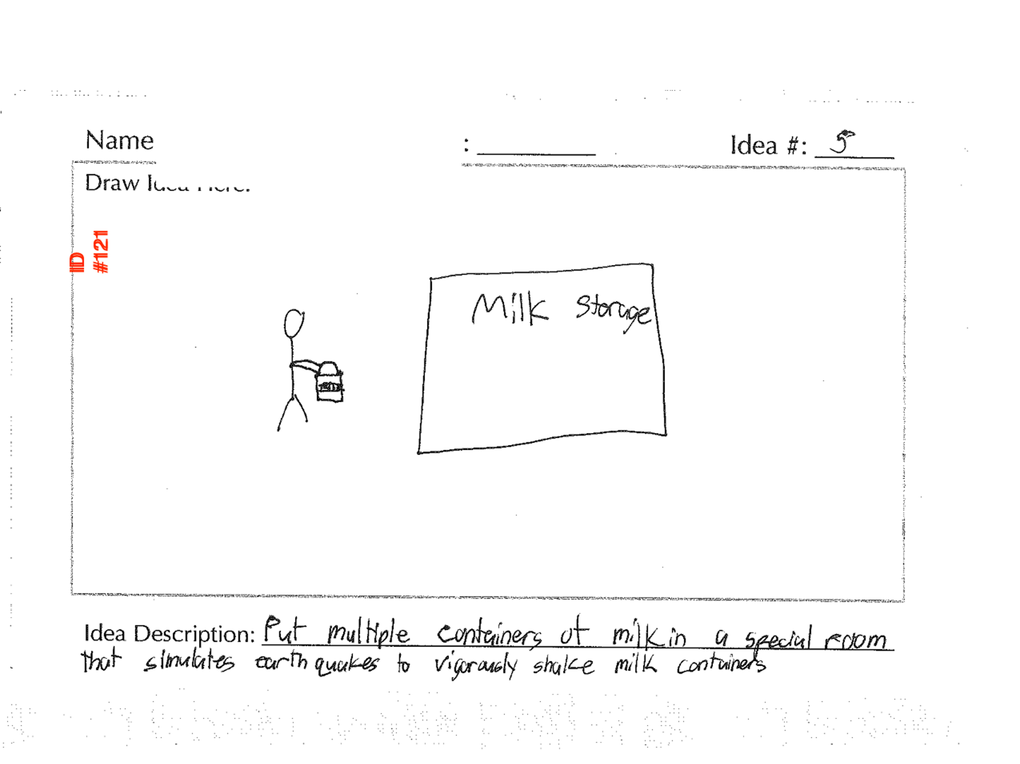 Name : Idea #: 5
Draw Idea Here:
ID
#121
Milk Storage
Idea Description: Put multiple containers of milk in a special room
that simulates earthquakes to vigorously shake milk containers